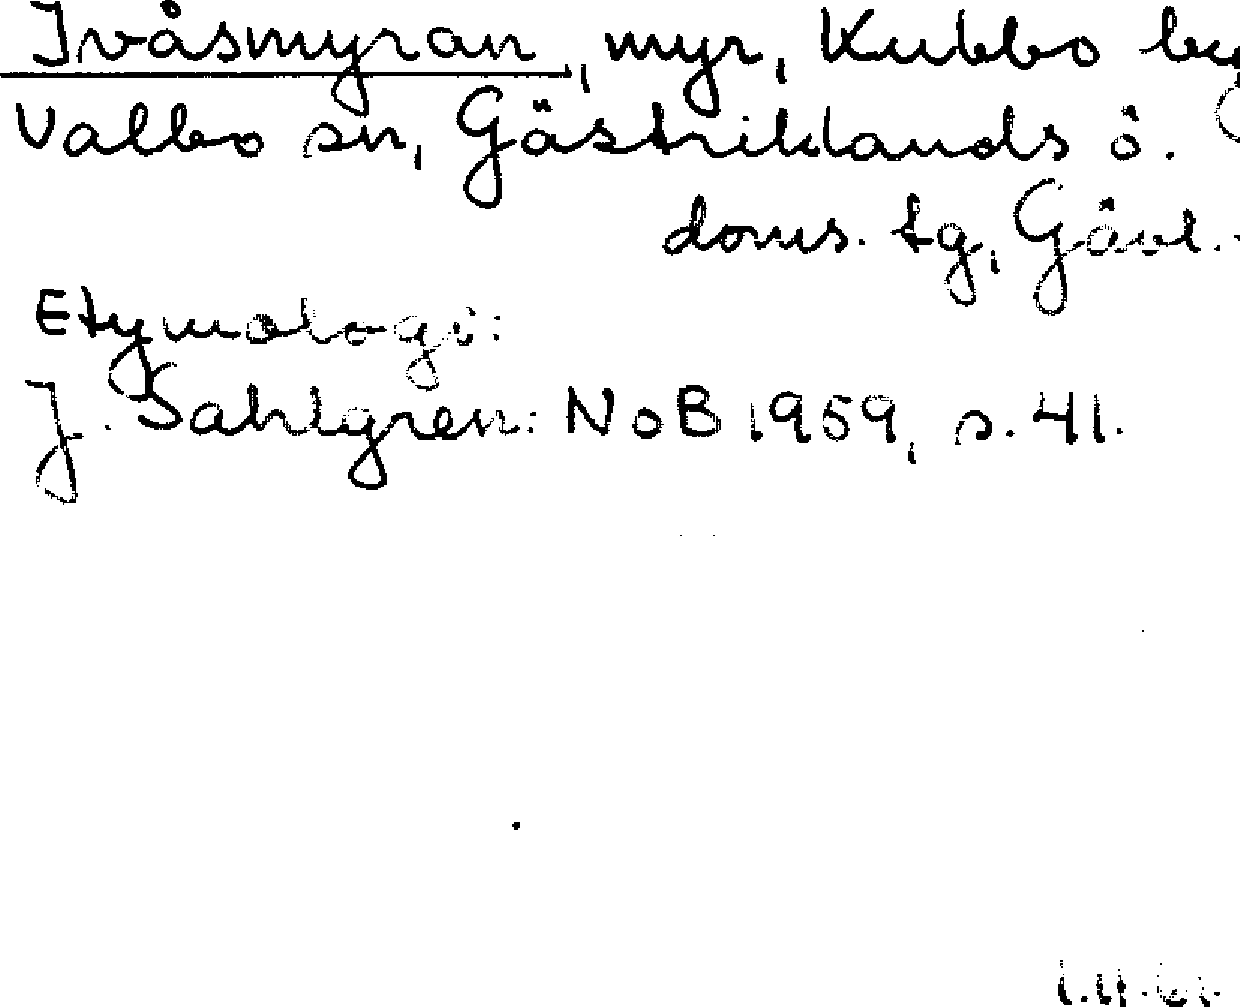 Ivåsmyran, myr, Kubbo by
Valbo sn, Gästriklands ö.
doms. tg, Gävl.
Etymologi:
J. Sahlgren: NoB 1959, s. 41.
1.11.61.